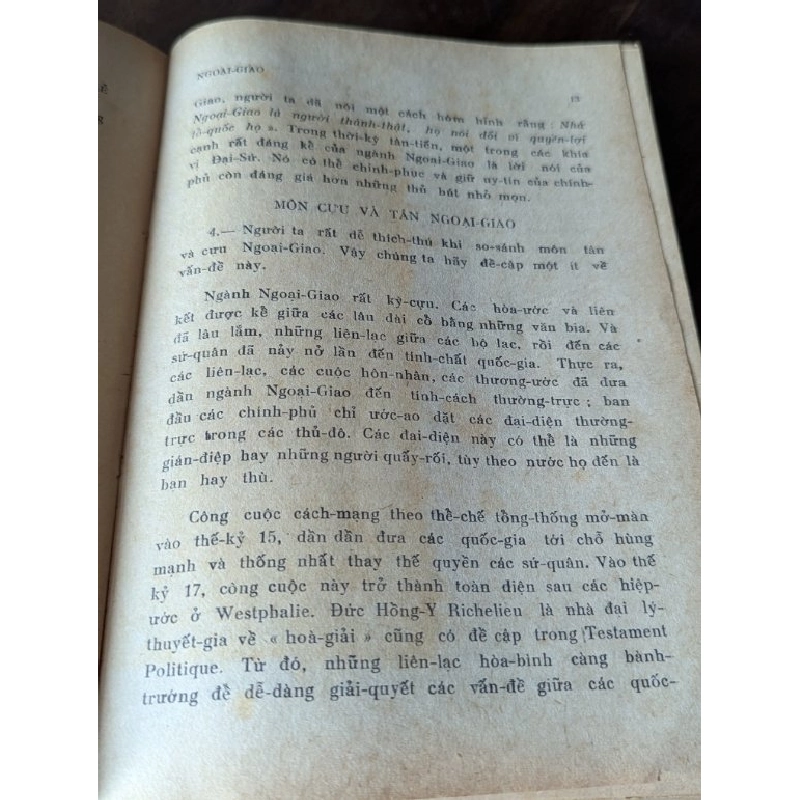 NGOẠI-GIAO
13
Giao, người ta đã nói một cách hóm hỉnh rằng : Nhà
Ngoại-Giao là người thành-thật, họ nói dối vì quyền-lợi
tổ-quốc họ ». Trong thời-kỳ tân-tiến, một trong các khía
cạnh rất đáng kể của ngành Ngoại-Giao là lời nói của
vị Đại-Sứ. Nó có thể chinh-phục và giữ uy-tín của chính-
phủ còn đáng giá hơn những thủ bút nhỏ mọn.
MÔN CỰU VÀ TÂN NGOẠI-GIAO
4.— Người ta rất dễ thích-thú khi so-sánh môn tân
và cựu Ngoại-Giao. Vậy chúng ta hãy đề-cập một ít về
vấn-đề này.
Ngành Ngoại-Giao rất kỳ-cựu. Các hòa-ước và liên
kết được kể giữa các lâu đài cổ bằng những văn bia. Và
đã lâu lắm, những liên-lạc giữa các bộ lạc, rồi đến các
sứ-quân đã nảy nở lần đến tính-chất quốc-gia. Thực ra,
các liên-lạc, các cuộc hôn-nhân, các thương-ước đã đưa
dần ngành Ngoại-Giao đến tính-cách thường-trực ; ban
đầu các chính-phủ chỉ ước-ao đặt các đại-diện thường-
trực trong các thủ-đô. Các đại-diện này có thể là những
gián-điệp hay những người quấy-rối, tùy theo nước họ đến là
bạn hay thù.
Công cuộc cách-mạng theo thể-chế tổng-thống mở-màn
vào thế-kỷ 15, dần dần đưa các quốc-gia tới chỗ hùng
mạnh và thống nhất thay thế quyền các sứ-quân. Vào thế
kỷ 17, công cuộc này trở thành toàn diện sau các hiệp-
ước ở Westphalie. Đức Hồng-Y Richelieu là nhà đại lý-
thuyết-gia về « hoà-giải » cũng có đề cập trong Testament
Politique. Từ đó, những liên-lạc hòa-bình càng bành-
trướng để dễ-dàng giải-quyết các vấn-đề giữa các quốc-